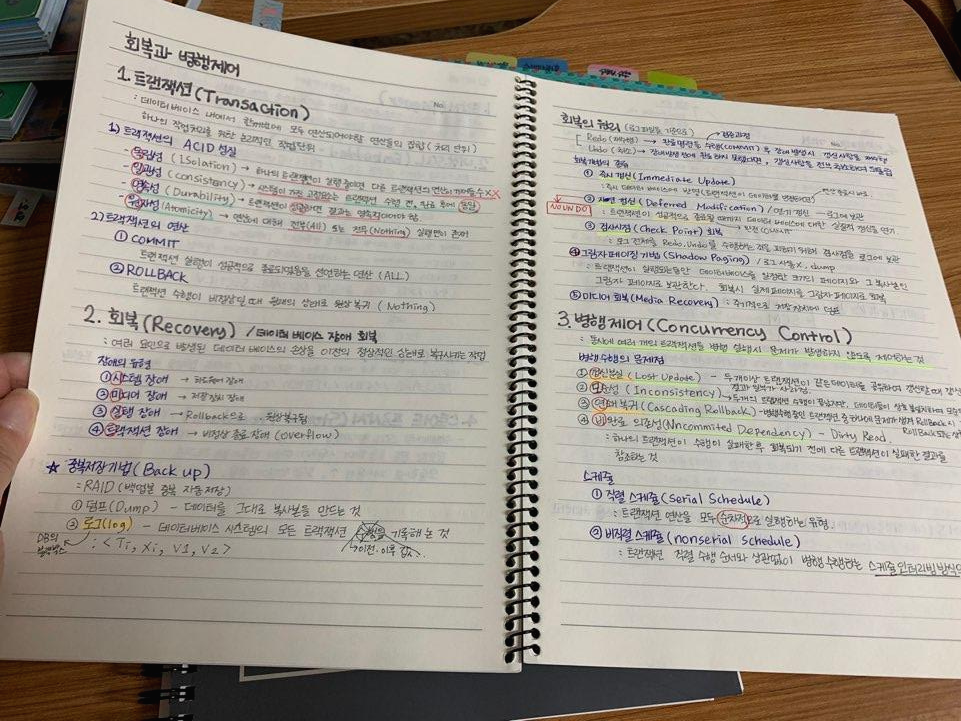 회복과 병행제어
No.
1. 트랜잭션 (Transaction)
: 데이터베이스 내에서 한꺼번에 모두 연산되어야할 연산들의 집합 (처리 단위)
하나의 작업처리를 위한 논리적인 작업단위
1) 트랙잭션의 ACID 성질
- 독립성 (Isolation) → 하나의 트랜잭션이 실행 중이면 다른 트랜잭션의 연산이 끼어들수 X
- 일관성 (Consistency) → 시스템이 가진 고정요소는 트랜잭션 수행 전, 수행 후에 동일
- 영속성 (Durability) → 트랜잭션이 성공하면 결과는 영속적이어야 함.
- 원자성 (Atomicity) → 연산에 대해 전부(All) 또는 전무(Nothing) 실행만이 존재
2) 트랜잭션의 연산
① COMMIT
트랜잭션 실행이 성공적으로 종료되었음을 선언하는 연산 (ALL)
② ROLLBACK
트랜잭션 수행이 비정상일 때 원래의 상태로 원상 복귀 (Nothing)
2. 회복 (Recovery) / 데이터 베이스 장애 회복
: 여러 요인으로 발생된 데이터베이스의 손상을 이전의 정상적인 상태로 복구시키는 작업
장애의 유형
① 시스템 장애 → 하드웨어 장애
② 미디어 장애 → 저장장치 장애
③ 실행 장애 → Rollback으로 원상복구됨
④ 트랙잭션 장애 → 비정상 종료 장애 (overflow)
★ 중복저장기법 (Back up)
: RAID (백업본 중복 자동저장)
① 덤프 (Dump) - 데이터를 그대로 복사본을 만드는 것
② 로그 (log) - 데이터베이스 시스템의 모든 트랙잭션 수행을 기록해 놓는 것
DB의
: < Ti, Xi, V1, V2 >
이전·이후 값
회복의 원리 (로그파일을 기준으로)
Redo (재수행) → 완료명령을 수행(commit) 후 장애 발생시 갱신사항을 재수행
Undo (취소) → 장애발생 전에 완료하지 못했다면, 갱신사항을 전부 취소하여 되돌림
회복기법의 종류
① 즉시 갱신 (Immediate Update)
: 즉시 데이터 베이스에 반영 (트랜잭션이 데이터를 변경하면)
② 지연 갱신 (Deferred Modification) / 연기 갱신 - 로그에 보관
NO UNDO
: 트랜잭션이 성공적으로 종료될 때까지 데이터베이스에 대한 실질적 갱신을 연기
③ 검사시점 (Check Point) 회복
: 로그 전체를 Redo, Undo를 수행하는 것을 피하기 위해 검사점을 로그에 보관
④ 그림자 페이징 기법 (Shadow Paging) / 로그 사용 X, dump
: 트랙잭션이 실행되는동안 데이터베이스를 일정한 크기의 페이지와 그 복사본인
그림자 페이지로 보관한다. 회복시 실제 페이지를 그림자 페이지로 회복
⑤ 미디어 회복 (Media Recovery) : 주기적으로 저장장치에 덤프
3. 병행제어 (Concurrency Control)
: 동시에 여러 개의 트랜잭션을 병행 실행시 문제가 발생하지 않도록 제어하는 것
병행수행의 문제점
① 갱신분실 (Lost Update) - 두개이상 트랜잭션이 같은 데이터를 공유하며 갱신할 때 갱신
결과 일부가 사라짐.
② 모순성 (Inconsistency)
③ 연쇄 복귀 (Cascading Rollback)
④ 비완료 의존성 (Nncommited Dependency) - Dirty Read.
: 하나의 트랜잭션이 수행이 실패한 후 회복되기 전에 다른 트랜잭션이 실패한 결과를
참조하는 것
스케줄
① 직렬 스케줄 (serial Schedule)
: 트랜잭션 연산을 모두 순차적으로 실행하는 유형
② 비직렬 스케줄 (nonserial schedule)
: 트랜잭션 직렬 수행 순서와 상관없이 병행 수행하는 스케줄 인터리빙 방식으